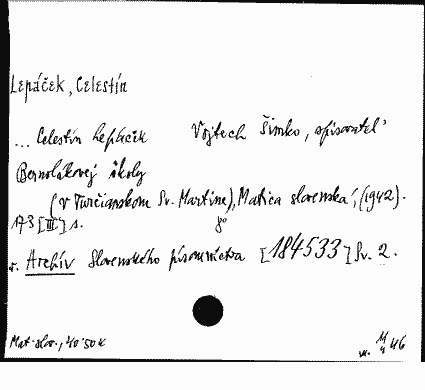 Lepáček, Celestín
... Celestín Lepáček Vojtech Šimko, spisovatel'
Bernolákovej školy
(v Turčianskom Sv. Martine), Matica slovenská, (1942).
173 [III] s. 8°
Archív Slovenského písomníctva [184533] Sv. 2.
Mat. slov., 40·50 K
46